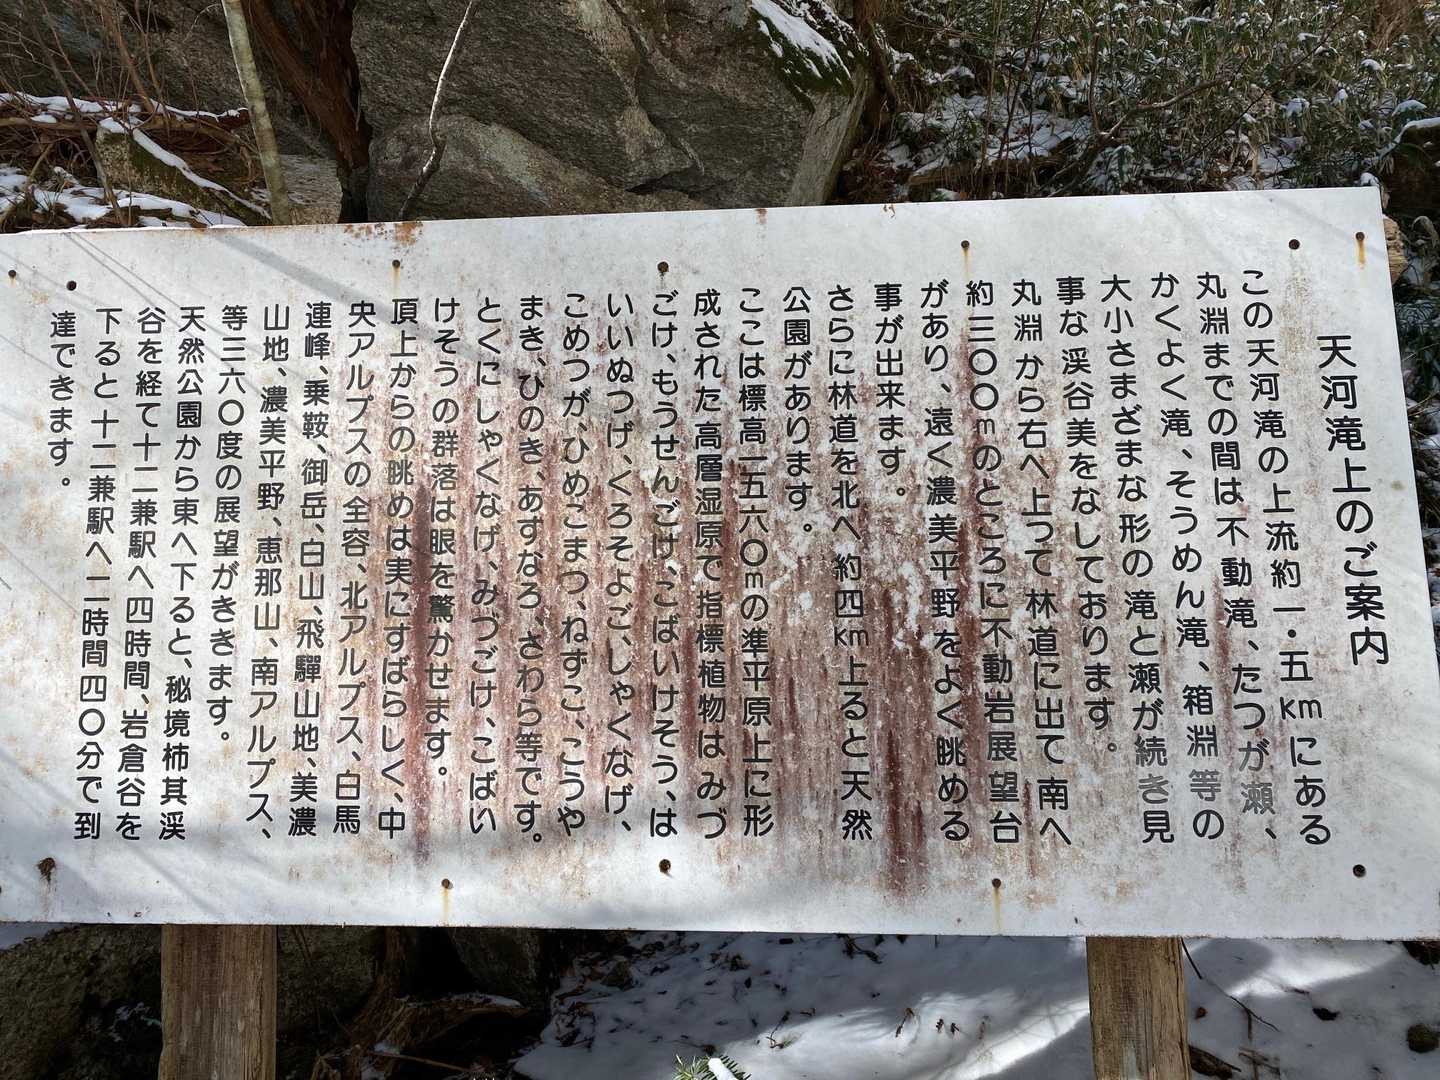 天河滝上のご案内
この天河滝の上流約一・五kmにある
丸淵までの間は不動滝、たつが瀬、
かくよく滝、そうめん滝、箱淵等の
大小さまざまな形の滝と瀬が続き見
事な渓谷美をなしております。
丸淵から右へ上つて林道に出て南へ
約三〇〇mのところに不動岩展望台
があり、遠く濃美平野をよく眺める
事が出来ます。
さらに林道を北へ約四km上ると天然
公園があります。
ここは標高一五六〇mの準平原上に形
成された高層湿原で指標植物はみづ
ごけ、もうせんごけ、こばいけそう、は
いいぬつげ、くろそよご、しゃくなげ、
こめつが、ひめこまつ、ねずこ、こうや
まき、ひのき、あすなろ、さわら等です。
とくにしゃくなげ、みづごけ、こばい
けそうの群落は眼を驚かせます。
頂上からの眺めは実にすばらしく、中
央アルプスの全容、北アルプス、白馬
連峰、乗鞍、御岳、白山、飛驒山地、美濃
山地、濃美平野、恵那山、南アルプス、
等三六〇度の展望がききます。
天然公園から東へ下ると、秘境柿其渓
谷を経て十二兼駅へ四時間、岩倉谷を
下ると十二兼駅へ二時間四〇分で到
達できます。